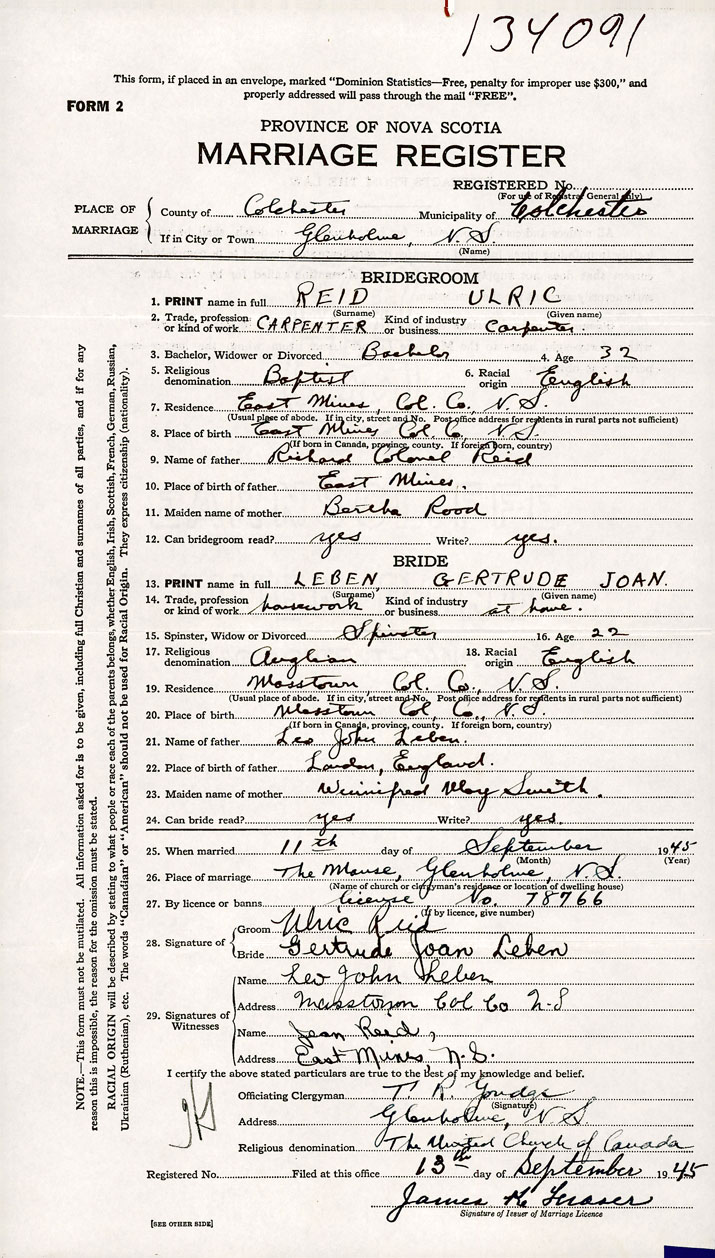 134091
This form, if placed in an envelope, marked "Dominion Statistics—Free, penalty for improper use $300," and
properly addressed will pass through the mail "FREE".
FORM 2
PROVINCE OF NOVA SCOTIA
MARRIAGE REGISTER
REGISTERED No.
(For use of Registrar General only)
PLACE OF MARRIAGE
County of Colchester Municipality of Colchester
If in City or Town Glenholme, N.S.
(Name)
BRIDEGROOM
1. PRINT name in full REID ULRIC
(Surname) (Given name)
2. Trade, profession or kind of work CARPENTER Kind of industry or business Carpenter.
3. Bachelor, Widower or Divorced Bachelor 4. Age 32
5. Religious denomination Baptist 6. Racial origin English
7. Residence East Mines, Col. Co., N.S.
(Usual place of abode. If in city, street and No. Post office address for residents in rural parts not sufficient)
8. Place of birth East Mines Col. Co., N.S.
(If born in Canada, province, county. If foreign born, country)
9. Name of father Richard Colonel Reid
10. Place of birth of father East Mines.
11. Maiden name of mother Bertha Rood
12. Can bridegroom read? yes Write? yes.
BRIDE
13. PRINT name in full LEBEN, GERTRUDE JOAN.
(Surname) (Given name)
14. Trade, profession or kind of work housework Kind of industry or business at home.
15. Spinster, Widow or Divorced Spinster 16. Age 22
17. Religious denomination Anglian 18. Racial origin English
19. Residence Masstown Col. Co., N.S.
(Usual place of abode. If in city, street and No. Post office address for residents in rural parts not sufficient)
20. Place of birth Masstown Col. Co., N.S.
(If born in Canada, province, county. If foreign born, country)
21. Name of father Leo John Leben.
22. Place of birth of father London, England.
23. Maiden name of mother Winnifred May Smith.
24. Can bride read? yes Write? yes.
25. When married 11th day of September 1945
(Month) (Year)
26. Place of marriage The Manse, Glenholme, N.S.
(Name of church or clergyman's residence or location of dwelling house)
27. By licence or banns license No. 78766
(If by licence, give number)
28. Signature of
Groom Ulric Reid
Bride Gertrude Joan Leben
29. Signatures of Witnesses
Name Leo John Leben
Address Masstown Col Co N-S
Name Jean Reid,
Address East Mines, N.S.
I certify the above stated particulars are true to the best of my knowledge and belief.
Officiating Clergyman T. R.
(Signature)
Address Glenholme, N S
Religious denomination The United Church of Canada
Registered No. Filed at this office 13th day of September 1945
James K Fraser
Signature of Issuer of Marriage Licence
[SEE OTHER SIDE]
NOTE.—This form must not be mutilated. All information asked for is to be given, including full Christian and surnames of all parties, and if for any
reason this is impossible, the reason for the omission must be stated.
RACIAL ORIGIN will be described by stating to what people or race each of the parents belongs, whether English, Irish, Scottish, French, German, Russian,
Ukrainian (Ruthenian), etc. The words "Canadian" or "American" should not be used for Racial Origin. They express citizenship (nationality).